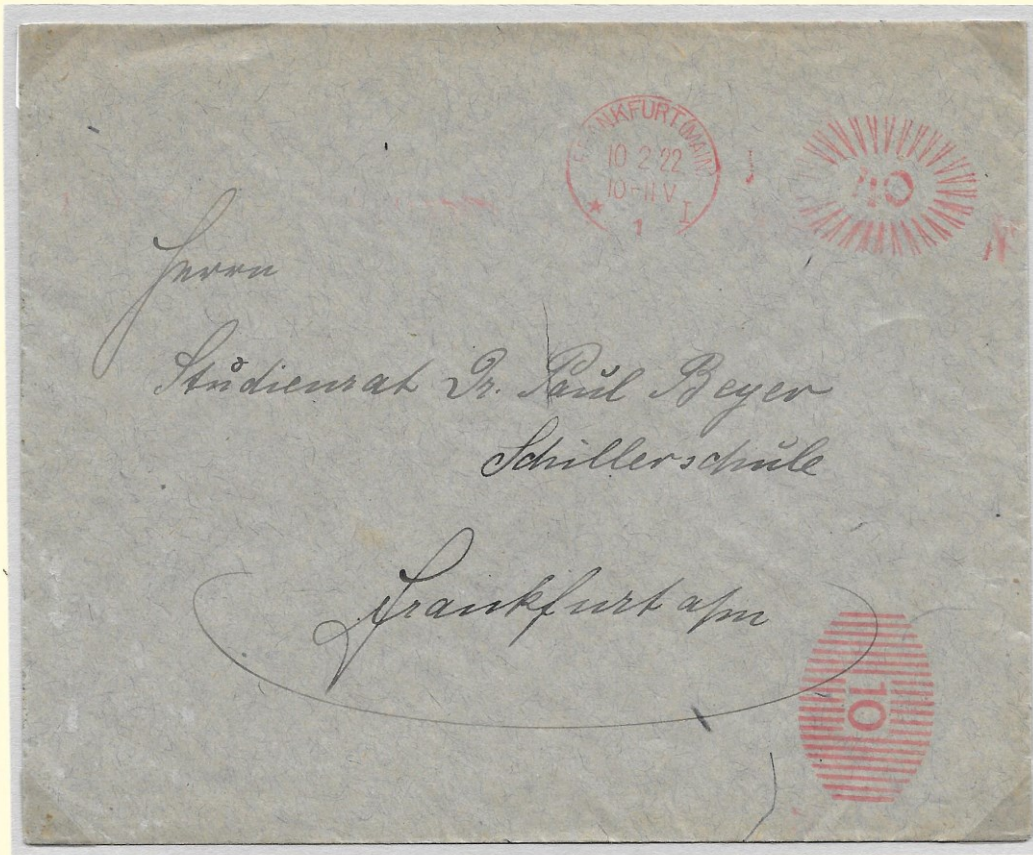 FRANKFURT (MAIN)
10 2 22
10-11 V
* 1 I
40
Herrn
Studienrat Dr. Paul Beyer
Schillerschule
Frankfurt a/m
10